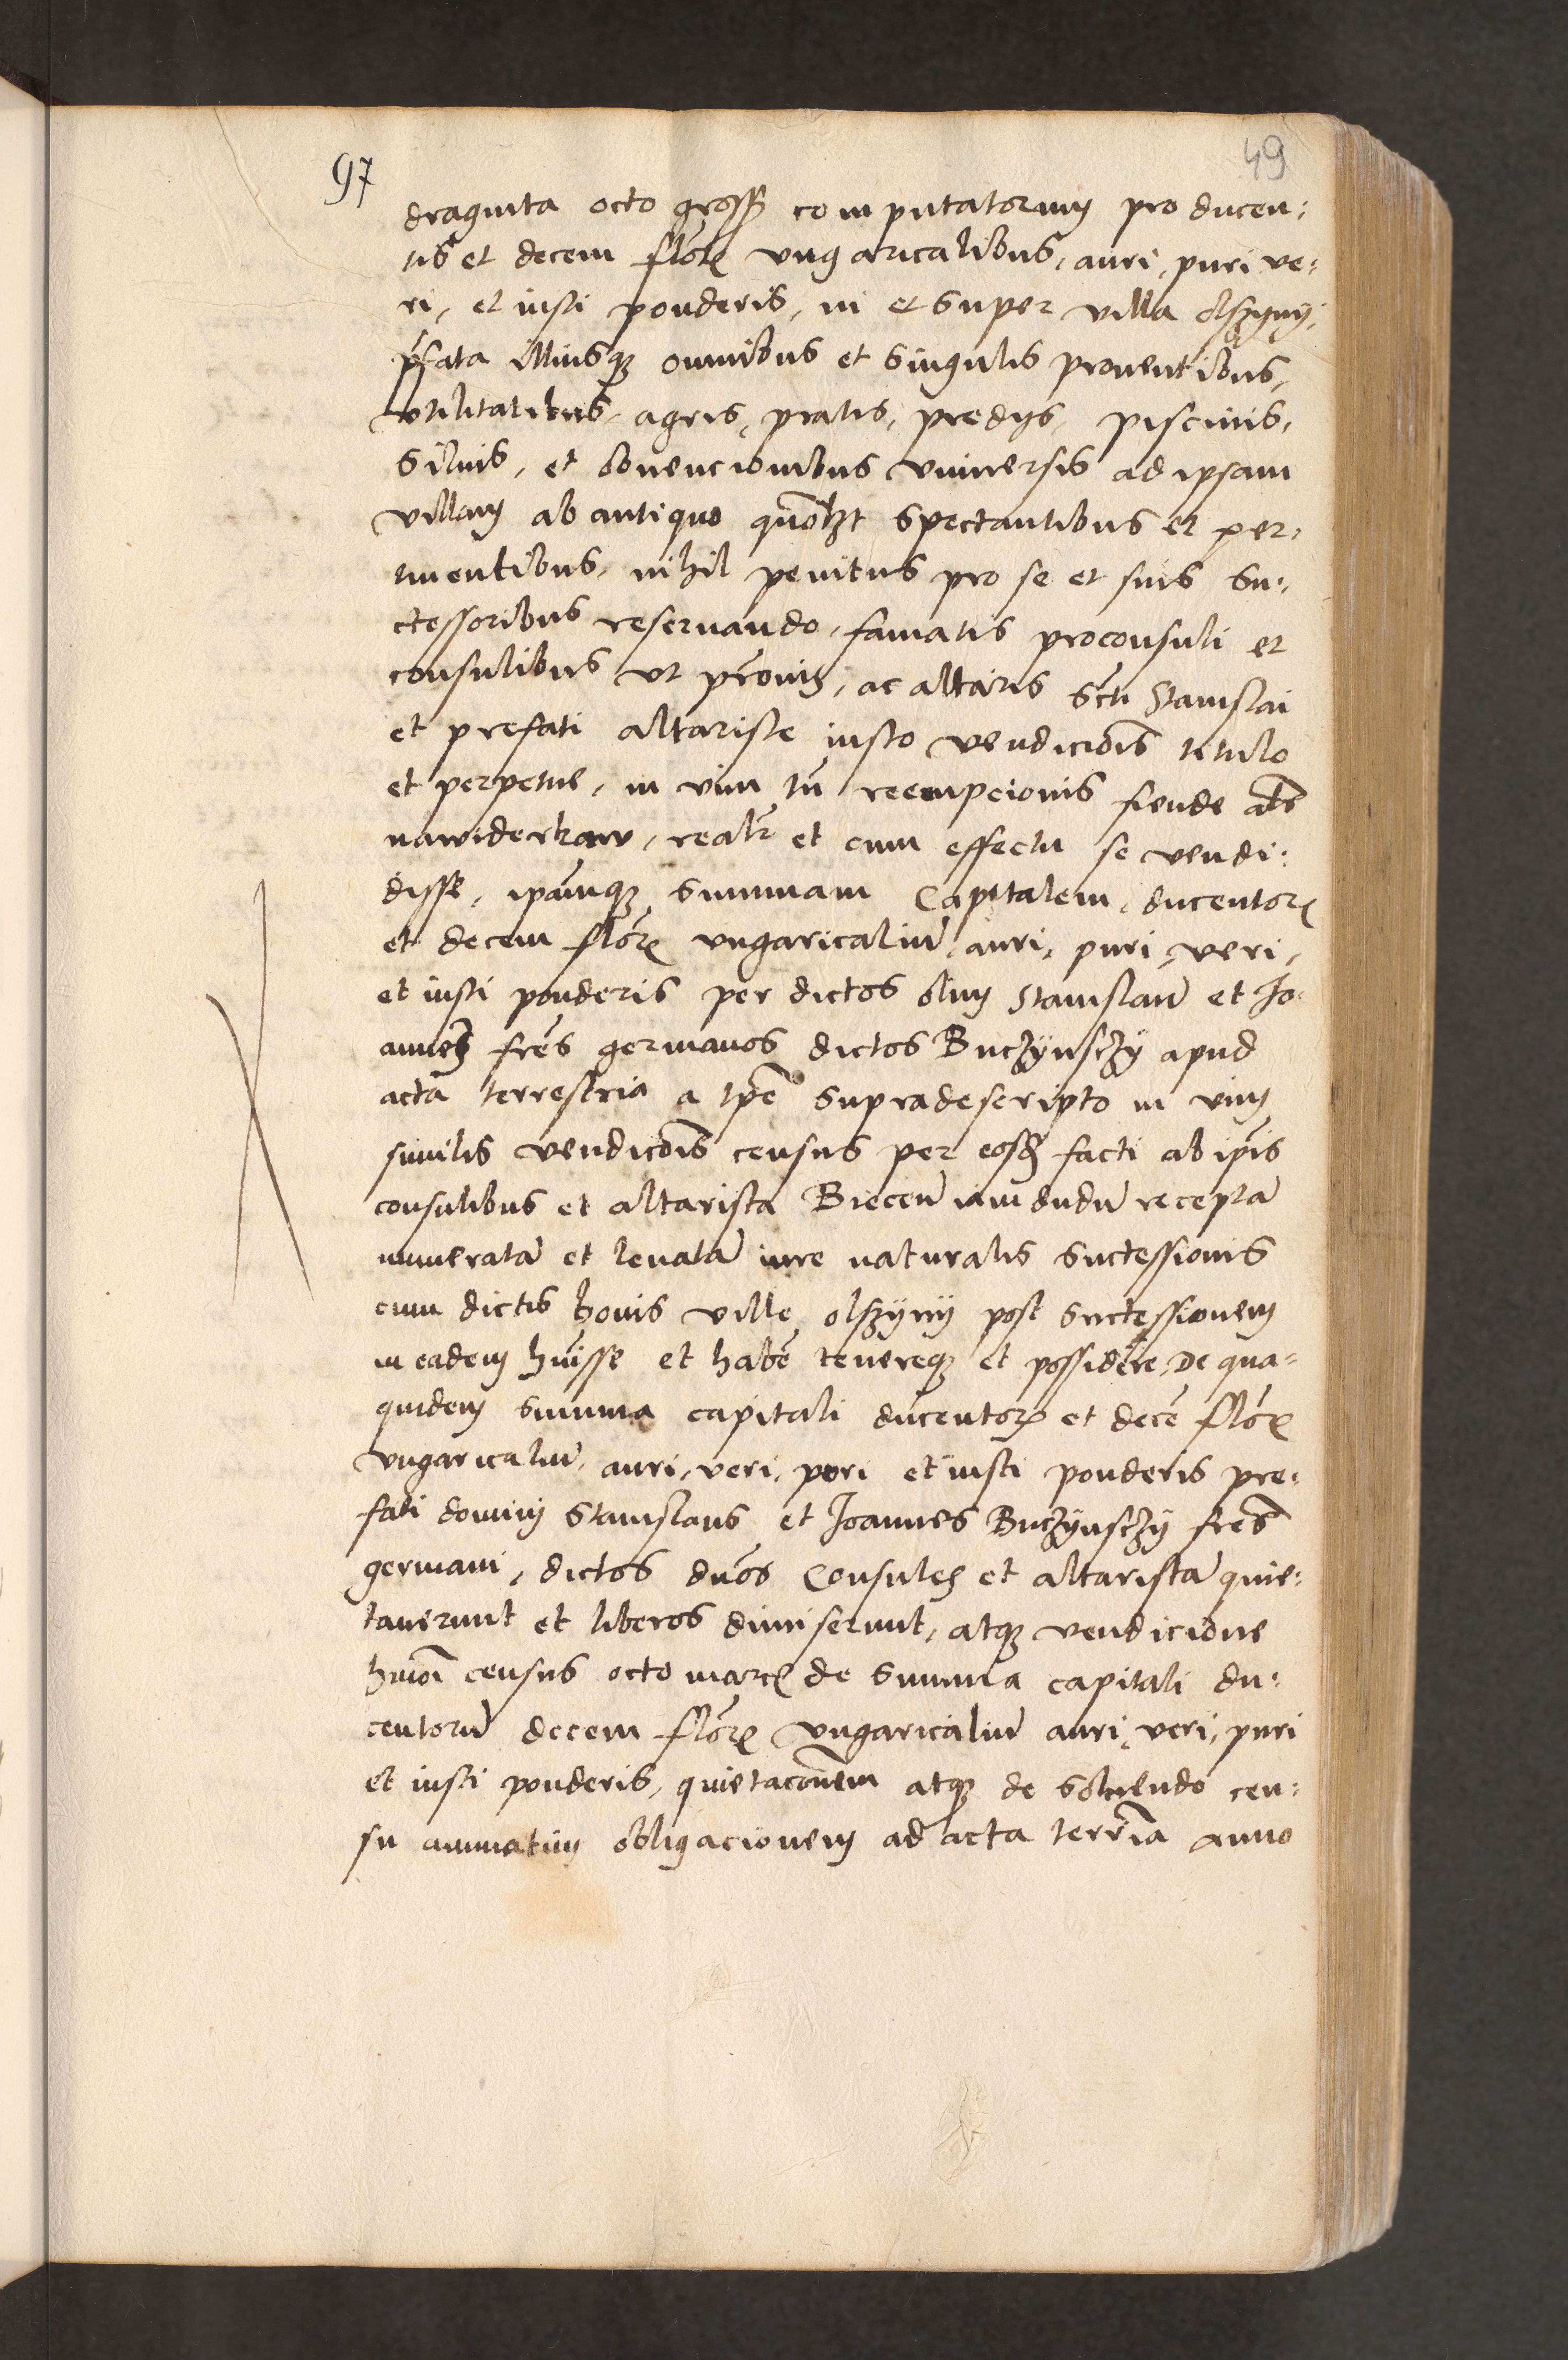 97
49
draginta octo gross computatorum pro ducen:
tis et decem floR ungaricalibus, auri, puri ve:
ri, et iusti ponderis, in et super villa olszyny,
p̄fata illiusq omnibus et singulis prouentibus,
utilitatibus, agris, pratis, predys, piscinis,
siluis, et obuencionibus vniuersis ad ipsam
villam ab antiquo quōlzt spectantibus et per,
tinentibus, nihil penitus pro se et suis su:
ctessoribus reseruando, famatis proconsuli et
consulibus vt p̄rouiz, ac altaris scti Stanislai
et prefati altariste iusto vendiciōis titulo
et perpetue, in vim tn̄ reempcionis fiende als
nawiderkaw, realr et cum effectu se vendi:
disse, ipāmq summam Capitalem, ducentoR
et decem floR vngaricaliū, auri, puri, veri,
et iusti ponderis per dictos olim Stanislaū et Jo:
annez fres germanos dictos Buczÿnsczÿ apud
acta terrestria a tpe supradescripto in vim
similis vendiciōis census per eosd facti ab ip̄is
consulibus et altarista Biecen̄ iamdudū receptā
numeratā et leuatā iure naturalis suctessionis
cum dictis bonis ville olszÿny post suctessionem
in eadem hūisse et habe tenereq et possidēre, De qua=
quidem summa capitali ducentoR et decē floR
vngaricaliū, auri, veri, puri et iusti ponderis pre:
fati domini Stanislaus et Joannes Buczÿnsczÿ fres
germani, dictos dn̄os Consules et altaristā quie:
tauerunt et liberos dimiserunt, atq vendicione
hmōi census octo marcR de summa capitali du:
centorū decem floR vngaricaliū auri, veri, puri
et iusti ponderis, quietacōnem atq de soluendo cen:
su annuatim obligacionem ad acta terrīa anno